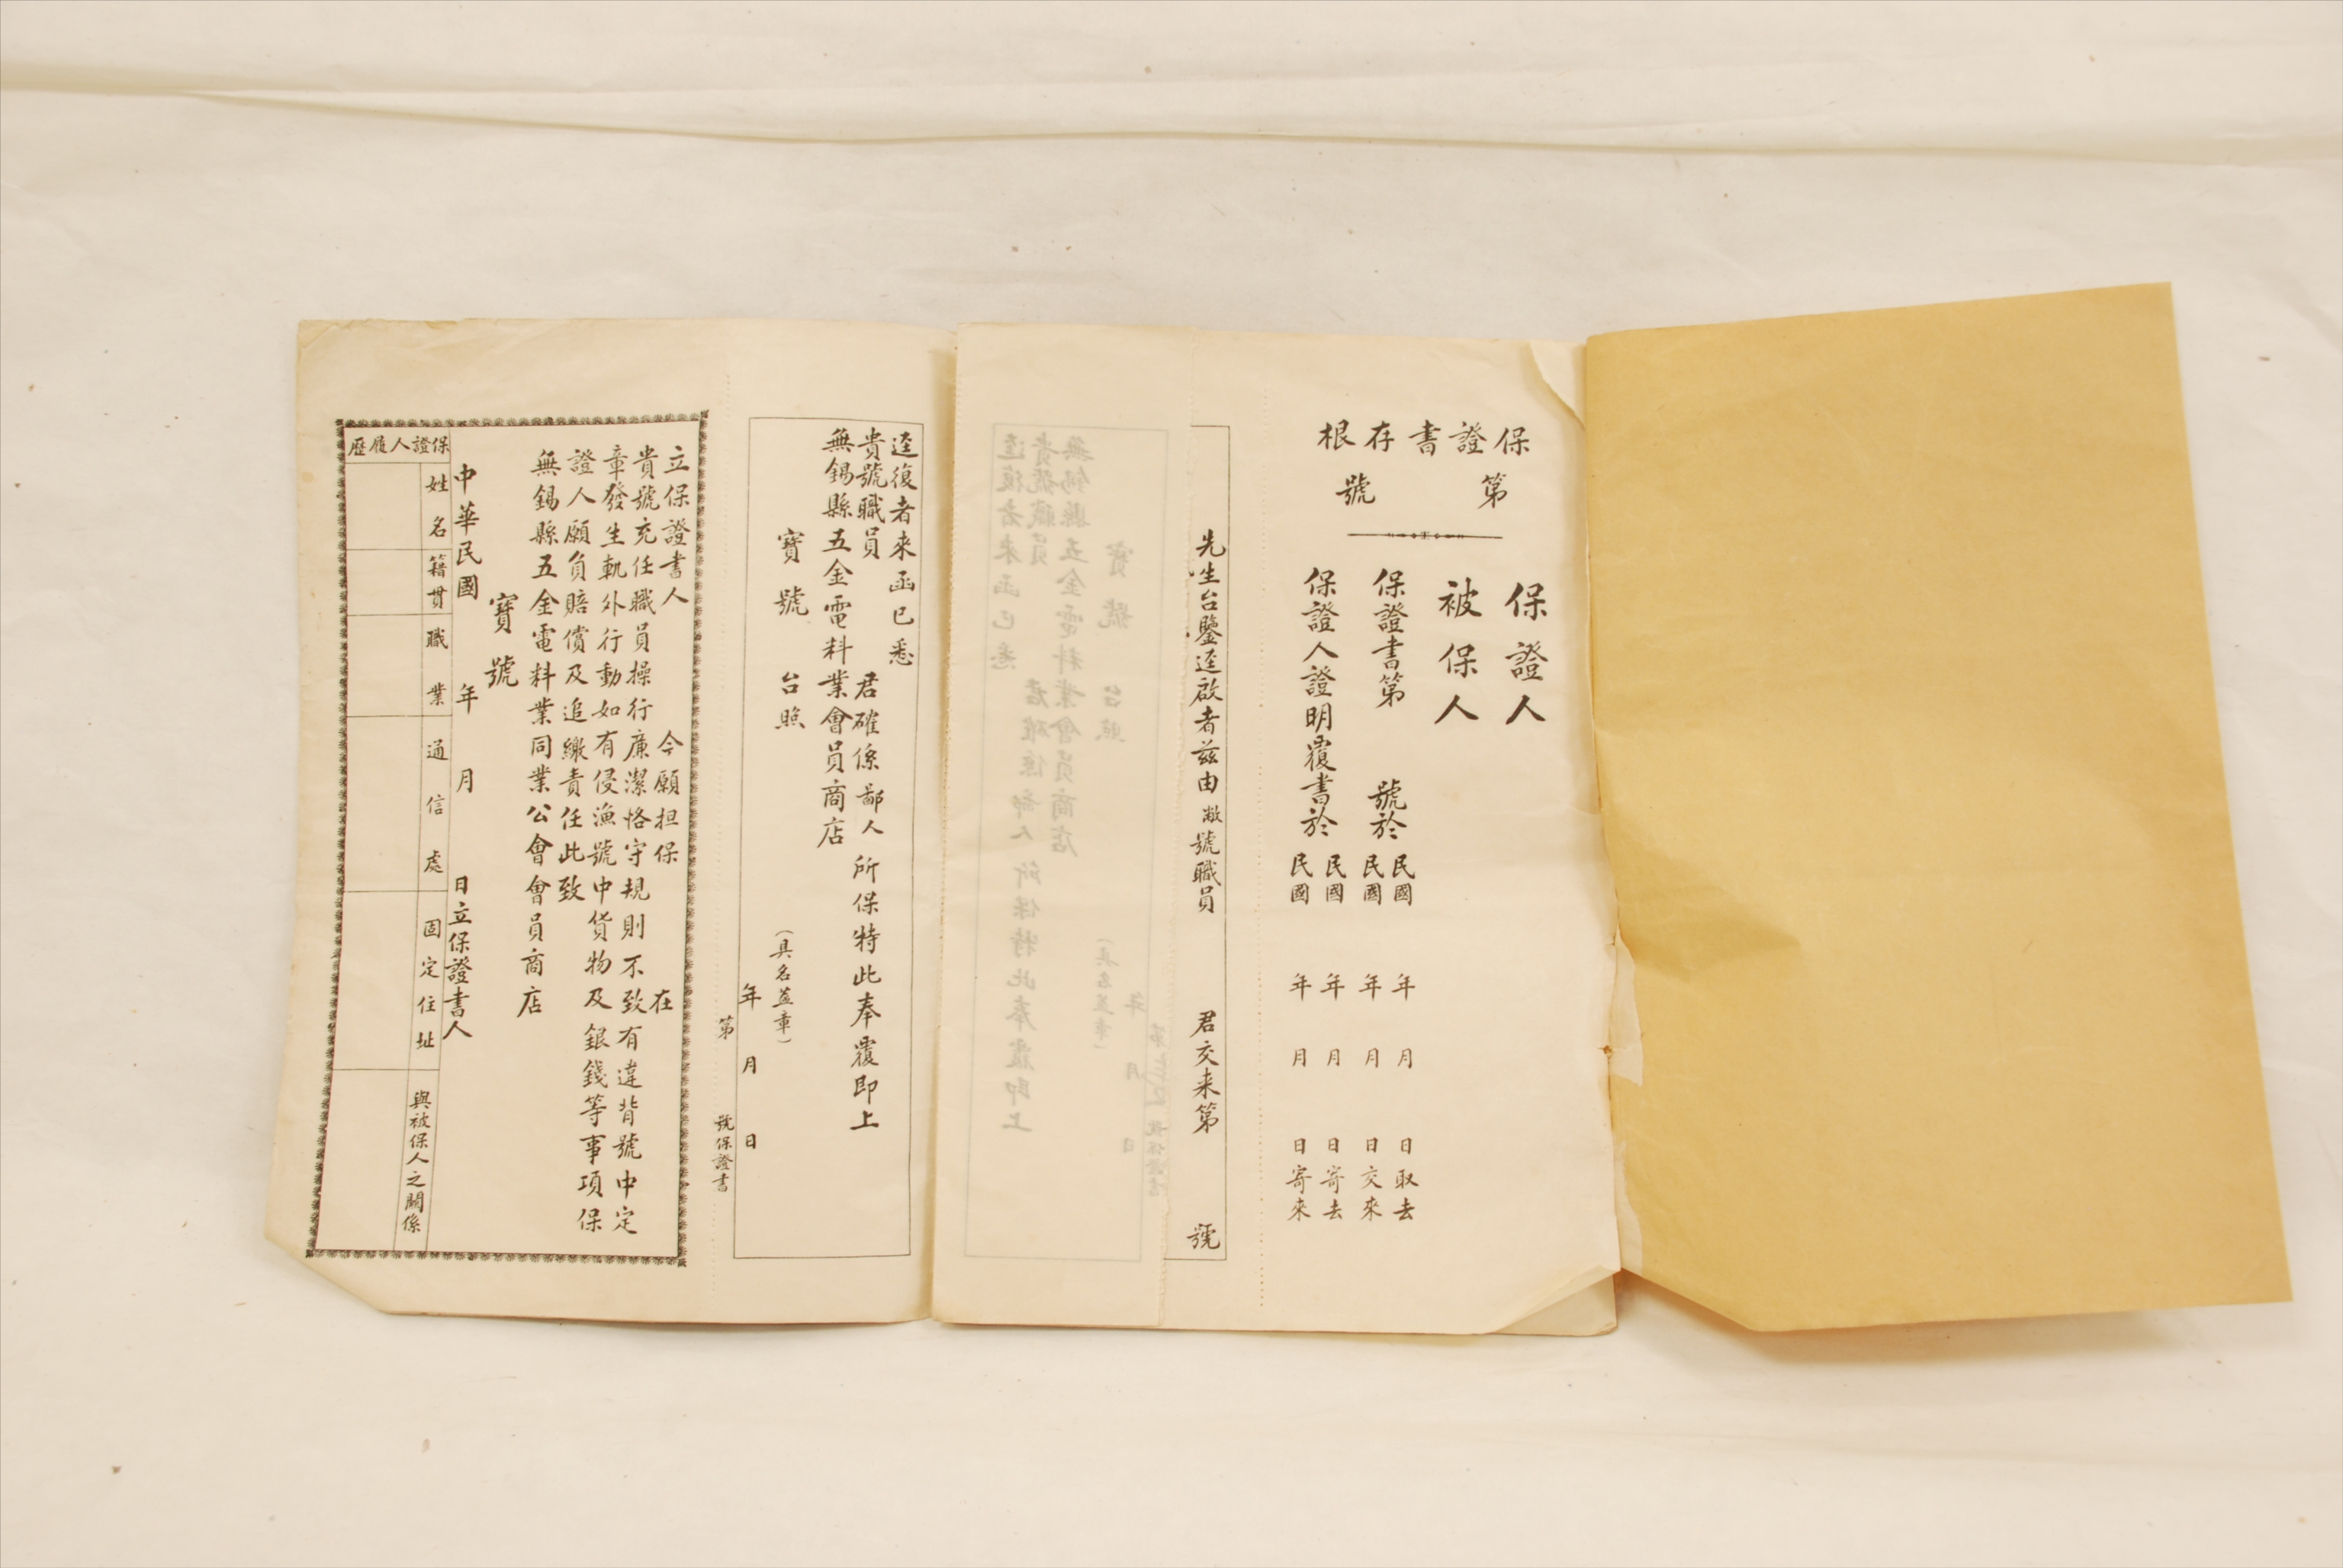 保證書存根
第 號
保證人
被保人
保證書第 號於
民國 年 月 日取去
民國 年 月 日交來
保證人證明覆書於
民國 年 月 日寄去
民國 年 月 日寄來
先生台鑒逕啟者茲由敝號職員 君交来第 號
逕復者来函已悉
貴號職員 君確係鄙人所保特此奉覆即上
無錫縣五金電料業會員商店
寶號 台照
(具名蓋章)
年 月 日
第 號保證書
立保證書人 今願担保 在
貴號充任職員操行廉潔恪守規則不致有違背號中定
章發生軌外行動如有侵漁號中貨物及銀錢等事項保
證人願負賠償及追繳責任此致
無錫縣五金電料業同業公會會員商店
寶號
中華民國 年 月 日立保證書人
保證人履歷
姓名
籍貫
職業
通信處
固定住址
與被保人之關係